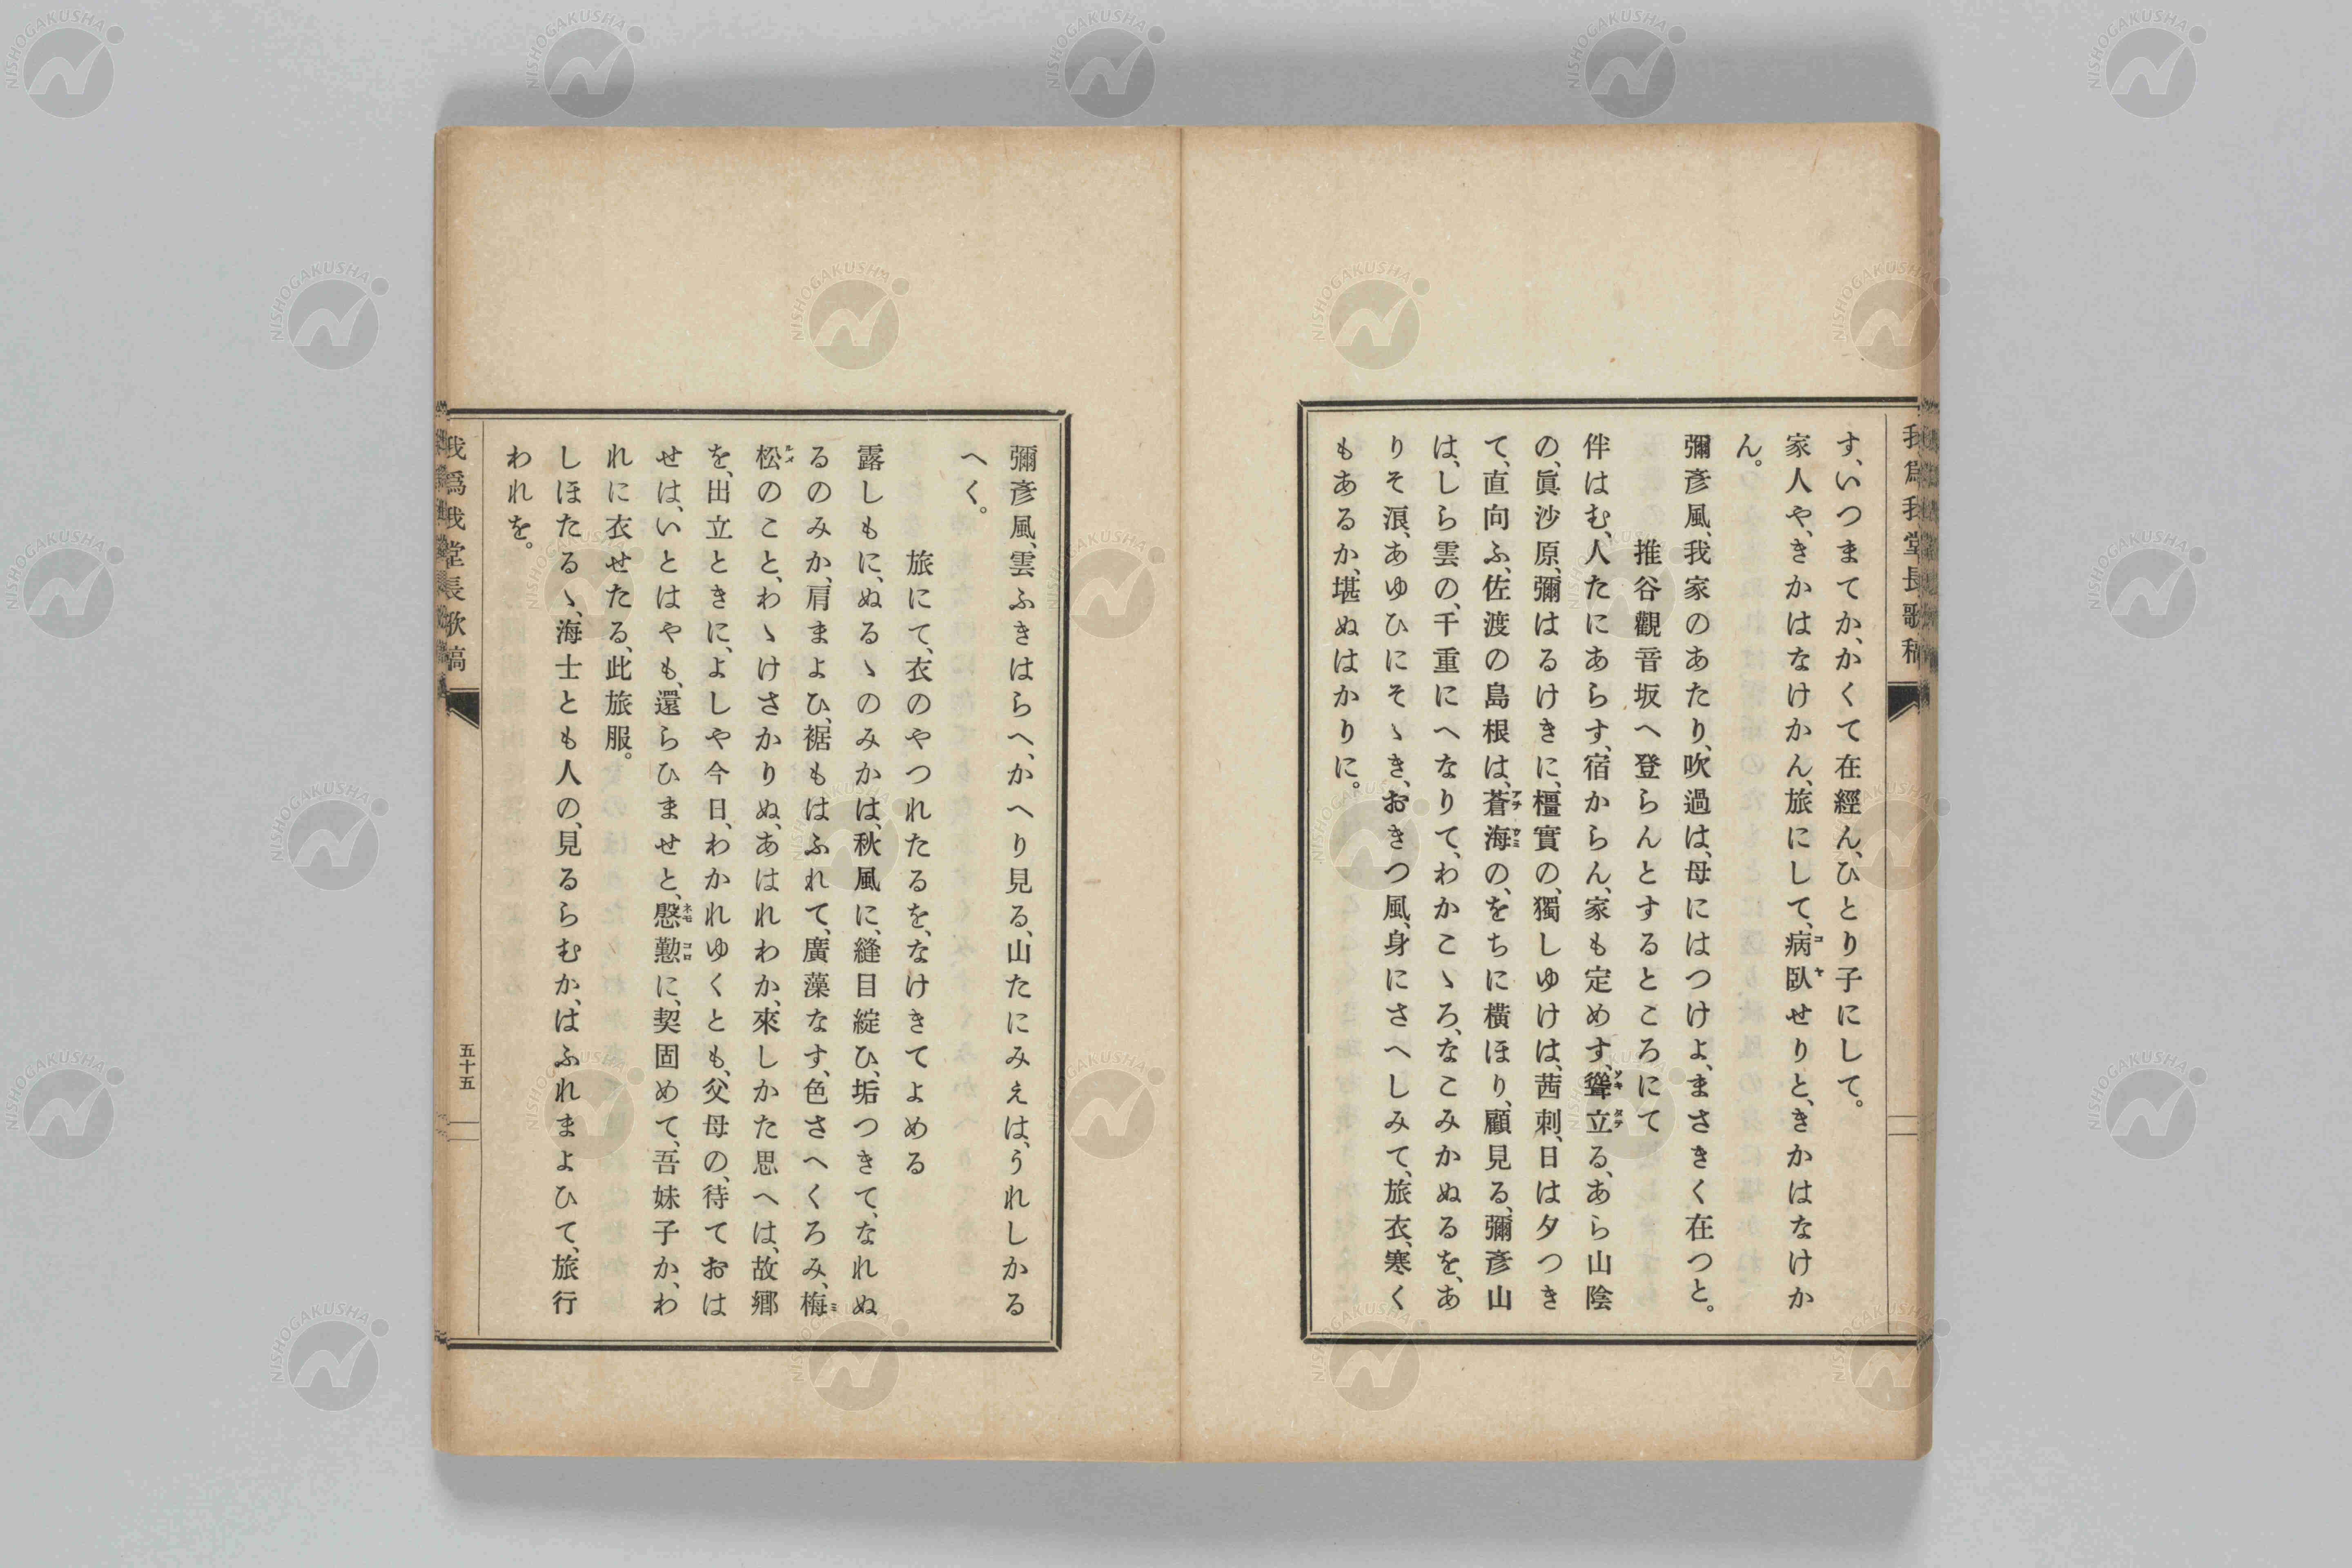 我爲我堂長歌稿
す、いつまてか、かくて在經ん、ひとり子にして。
家人や、きかはなけかん、旅にして、病臥せりと、きかはなけか
ん。
彌彥風、我家のあたり、吹過は、母にはつけよ、まさきく在つと。
推谷觀音坂へ登らんとするところにて
伴はむ、人たにあらす、宿からん、家も定めす、聳立る、あら山陰
の、眞沙原、彌はるけきに、橿實の、獨しゆけは、茜刺、日は夕つき
て、直向ふ、佐渡の島根は、蒼海の、をちに橫ほり、顧見る、彌彥山
は、しら雲の、千重にへなりて、わかこゝろ、なこみかぬるを、あ
りそ浪、あゆひにそゝき、おきつ風、身にさへしみて、旅衣、寒く
もあるか、堪ぬはかりに。
彌彥風、雲ふきはらへ、かへり見る、山たにみえは、うれしかる
へく。
旅にて、衣のやつれたるを、なけきてよめる
露しもに、ぬるゝのみかは、秋風に、縫目綻ひ、垢つきて、なれぬ
るのみか、肩まよひ、裾もはふれて、廣藻なす、色さへくろみ、梅
松のこと、わゝけさかりぬ、あはれわか、來しかた思へは、故鄕
を、出立ときに、よしや今日、わかれゆくとも、父母の、待ておは
せは、いとはやも、還らひませと、慇懃に、契固めて、吾妹子か、わ
れに衣せたる、此旅服。
しほたるゝ、海士とも人の、見るらむか、はふれまよひて、旅行
われを。
我爲我堂長歌稿
五十五
NISHOGAKUSHA